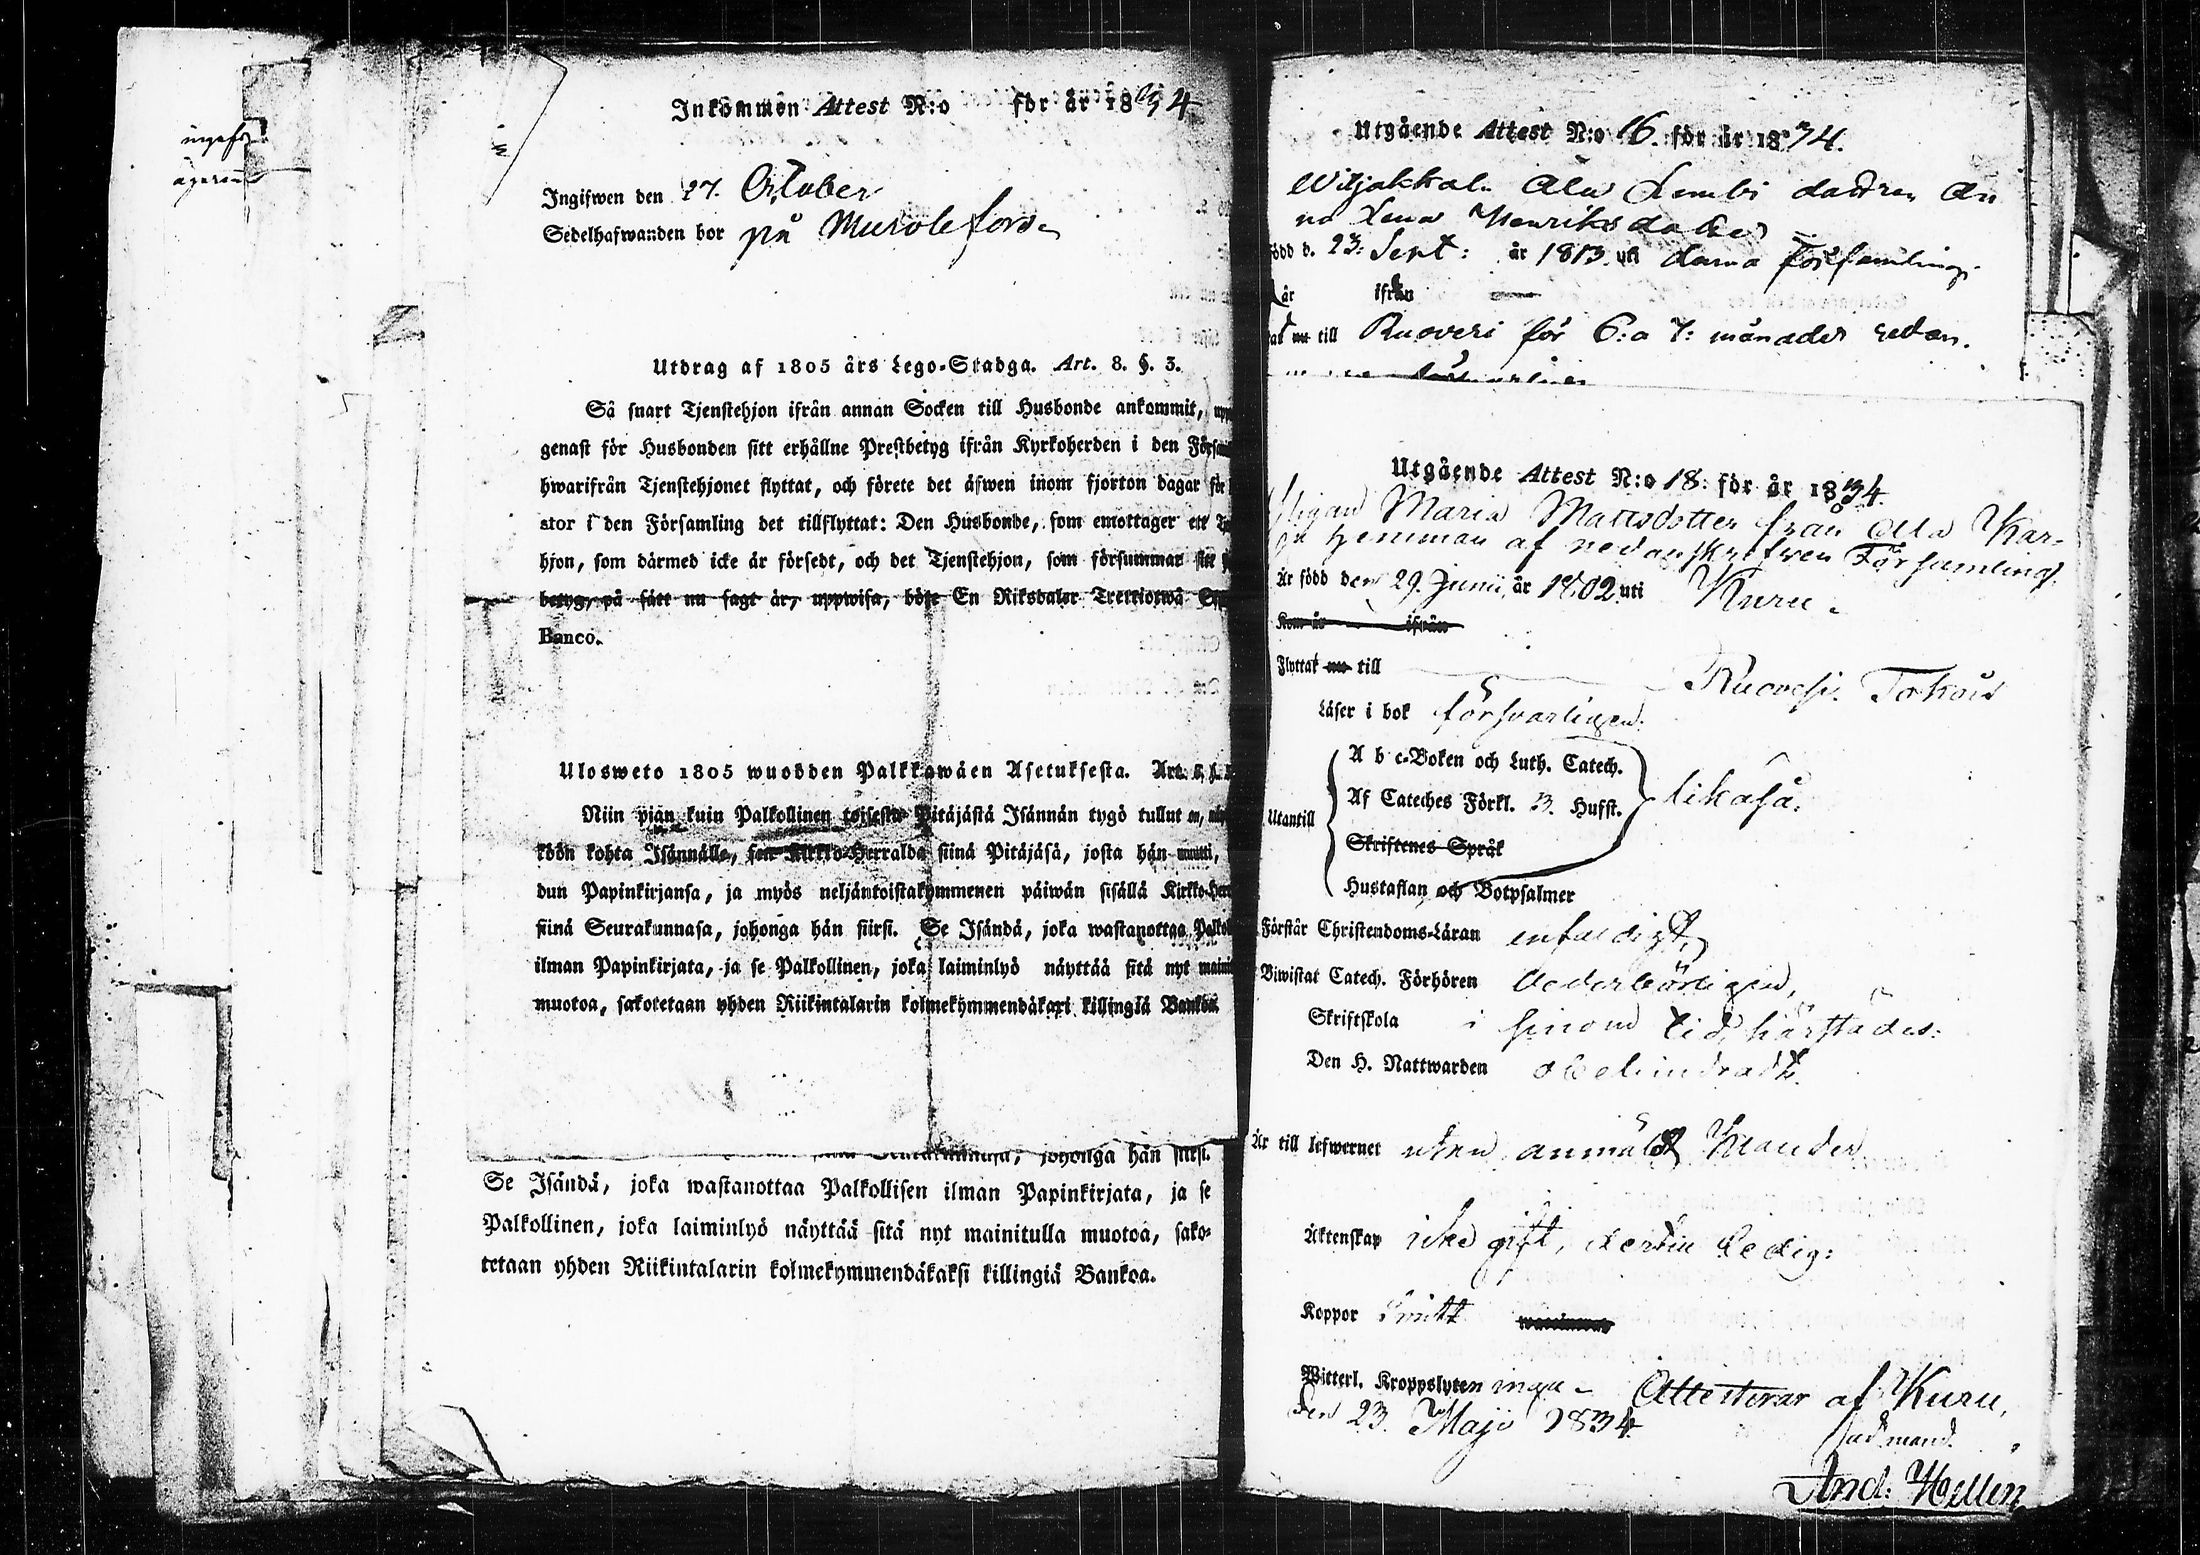 Inkommen Attest N:o för år 1834
Ingifwen den 27. October
Sedelhafwanden bor på Muroleforss
Utdrag af 1805 års Lego-Stadga. Art. 8. §. 3.
Så snart Tjenstehjon ifrån annan Socken till Husbonde ankommit,
genast för Husbonden sitt erhållne Prestbetyg ifrån Kyrkoherden i den
hwarifrån Tjenstehjonet flyttat, och förete det äfwen inom fjorton dagar för
stor i den Församling det tillflyttat: Den Husbonde, som emottager ett
hjon, som därmed icke är försedt, och det Tjenstehjon, som försummar sitt
betyg, på sätt nu sagt är, uppwisa, böte En Riksdaler Trettiotwå
Banco.
Ulosweto 1805 wuodden Palkkawäen Asetuksesta. Art. 8. §.
Niin pian kuin Palkollinen toisesta Pitäjästä Isännän tygö tullut on,
köön kohta Isännälle, sen Kirkko-Herralda siinä Pitäjäsä, josta hän muutti,
dun Papinkirjansa, ja myös neljäntoistakymmenen päiwän sisällä
siinä Seurakunnasa, johonga hän siirsi. Se Isändä, joka wastanottaa
ilman Papinkirjata, ja se Palkollinen, joka laiminlyö näyttää sitä nyt
muotoa, sakotetaan yhden Riikintalarin kolmekymmendäkaxi killingiä Bankoa.
johonga hän siirsi.
Se Isändä, joka wastanottaa Palkollisen ilman Papinkirjata, ja se
Palkollinen, joka laiminlyö näyttää sitä nyt mainitulla muotoa, sako-
tetaan yhden Riikintalarin kolmekymmendäkaksi killingiä Bankoa.
Utgående Attest N:o 16. för år 1834.
Wiljakkala Ala Lembi dottren An
na Lena Henriksdotter
född d. 23. Sept: år 1813. uti denna församling.
är ifrån
nu till Ruovesi för 6: a 7: månader sedan.
Utgående Attest N:o 18. för år 1834.
Pigan Maria Mattsdotter från Ala Kar-
hemman af nedanskrefwen Församling.
Är född den 29. Junii år 1802 uti Kuru.
Kom år ifrån
Flyttat nu till Ruovesi.
Läser i bok försvarligen.
Utantill
A b c-Boken och Luth. Catech.
Af Cateches Förkl. 3. Hufst. likaså.
Skriftenes Språk
Hustaflan och Botpsalmer
Förstår Christendoms-Läran enfaldigt,
Biwistat Catech. Förhören vederbörligen,
Skriftskola i sinom tid härstädes.
Den H. Nattwarden obehindradt.
Är till lefwernet utan anmäldt klander
Äktenskap icke gift, dertill ledig:
Koppor haft
Witterl. Kroppslyten inga. Attesterar af Kuru,
den 23. Maji 1834.
And: Hellen